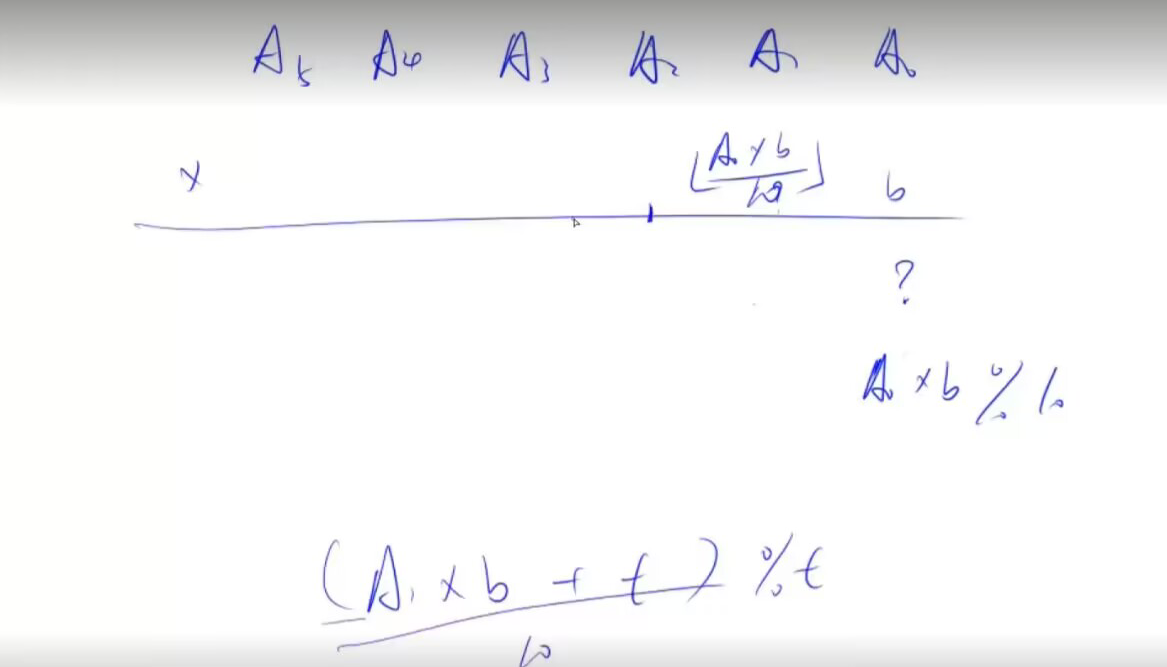 A₅ A₄ A₃ A₂ A₁ A₀
× ⌊A₀×b/10⌋ b
?
A₀ × b % 10
(A₁ × b + t) % t
10